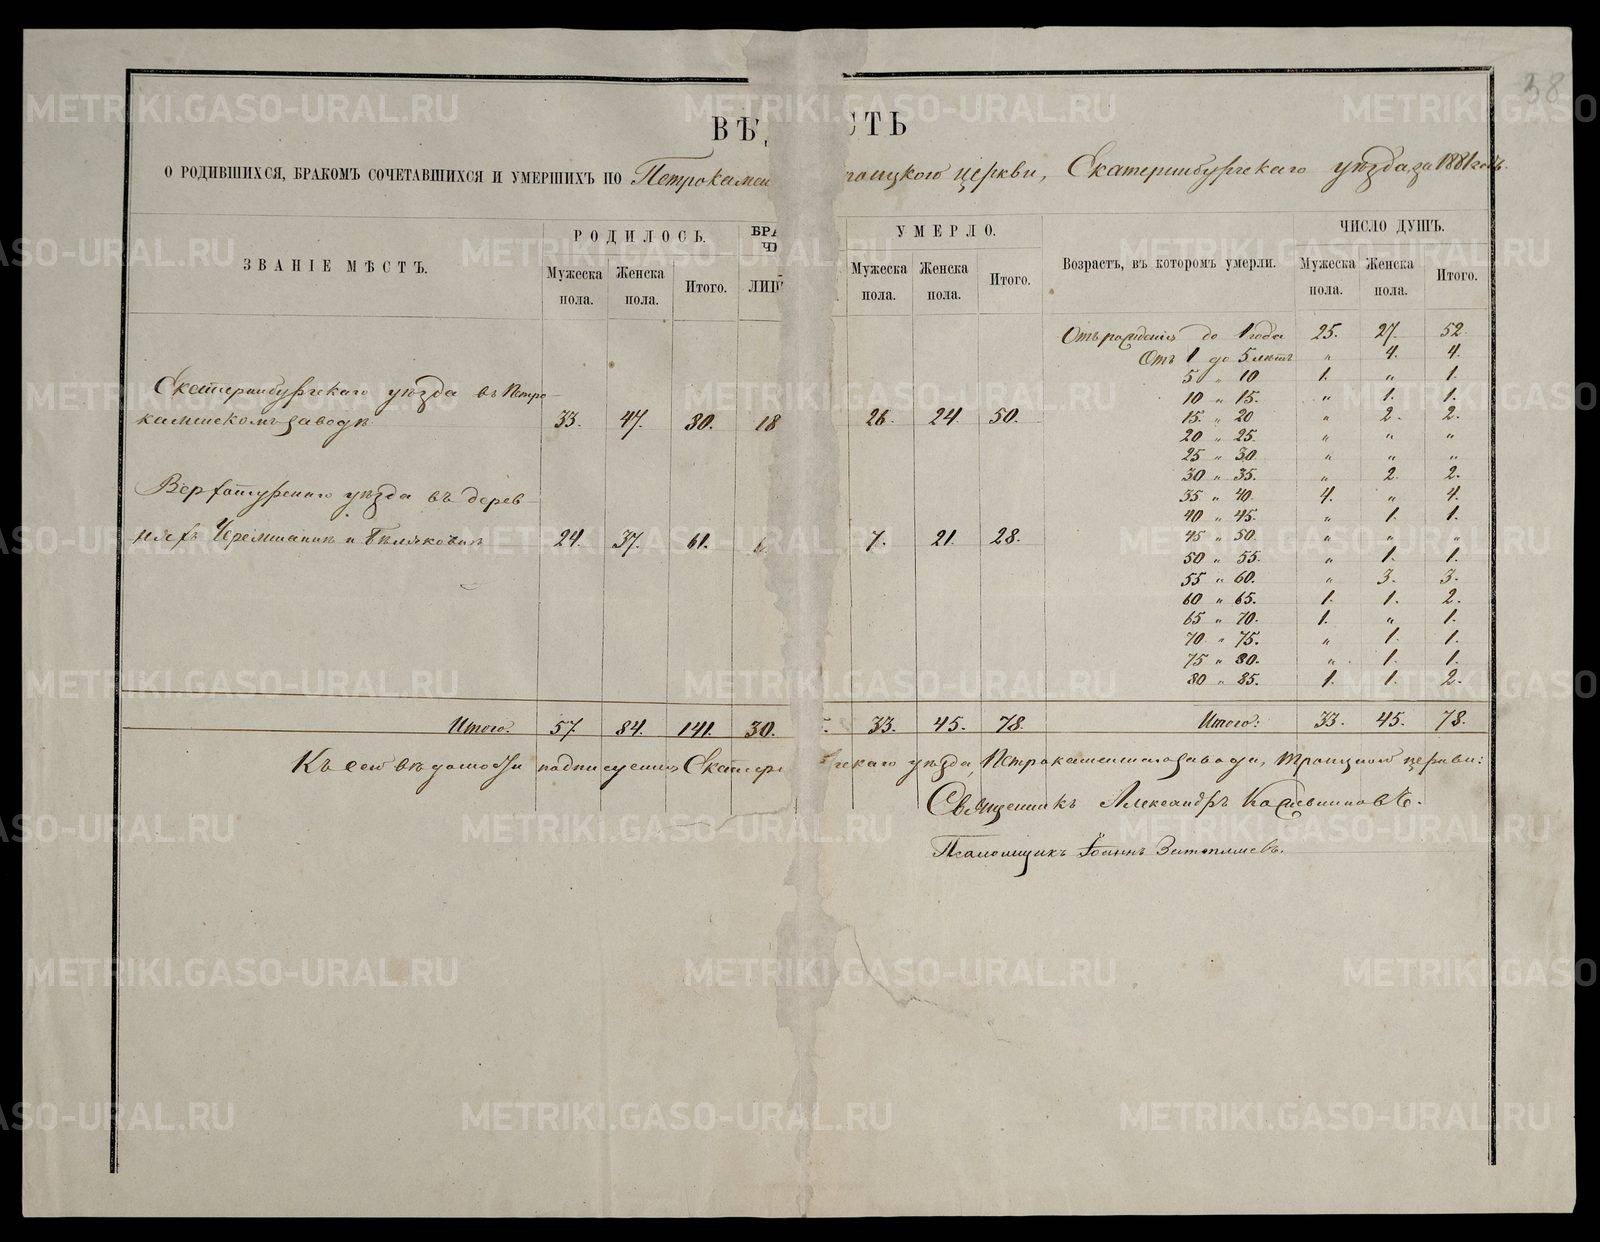 38
ВѢ СТЬ
О РОДИВШИХСЯ, БРАКОМЪ СОЧЕТАВШИХСЯ И УМЕРШИХЪ ПО Петрокамен роицкою церкви, Екатеринбургскаго уѣзда, за 1881 годъ.
ЗВАНІЕ МѢСТЪ. РОДИЛОСЬ. БРА ЧИ УМЕРЛО. Возрастъ, въ которомъ умерли. ЧИСЛО ДУШЪ.
Мужеска пола. Женска пола. Итого. ЛИЦ Мужеска пола. Женска пола. Итого. Мужеска пола. Женска пола. Итого.
Отъ рожденія до 1 года 25. 27. 52.
Отъ 1 до 5 лѣтъ " 4. 4.
5 " 10 1. " 1.
Екатеринбургскаго уѣзда въ Петро-
10 " 15. " 1. 1.
каменскомъ заводѣ 33. 47. 80. 18 26. 24. 50. 15. " 20 " 2. 2.
20 " 25. " " "
25 " 30. " " "
30 " 35. " 2. 2.
Верхотурскаго уѣзда въ дерев-
35 " 40. 4. " 4.
40 " 45. " 1. 1.
няхъ Черемшанкѣ и Бѣляковкѣ 24. 37. 61. 7. 21. 28. 45 " 50. " " "
50 " 55. " 1. 1.
55 " 60. " 3. 3.
60 " 65. 1. 1. 2.
65 " 70. 1. " 1.
70 " 75. " 1. 1.
75 " 80. " 1. 1.
80 " 85. 1. 1. 2.
Итого. 57. 84. 141. 30. 33. 45. 78. Итого: 33. 45. 78.
Къ сей вѣдомости подписуемся Екатери гскаго уѣзда, Петрокаменскаго завода, Троицкой церкви:
Священникъ Александръ
Псаломщикъ Іоаннъ
METRIKI.GASO-URAL.RU